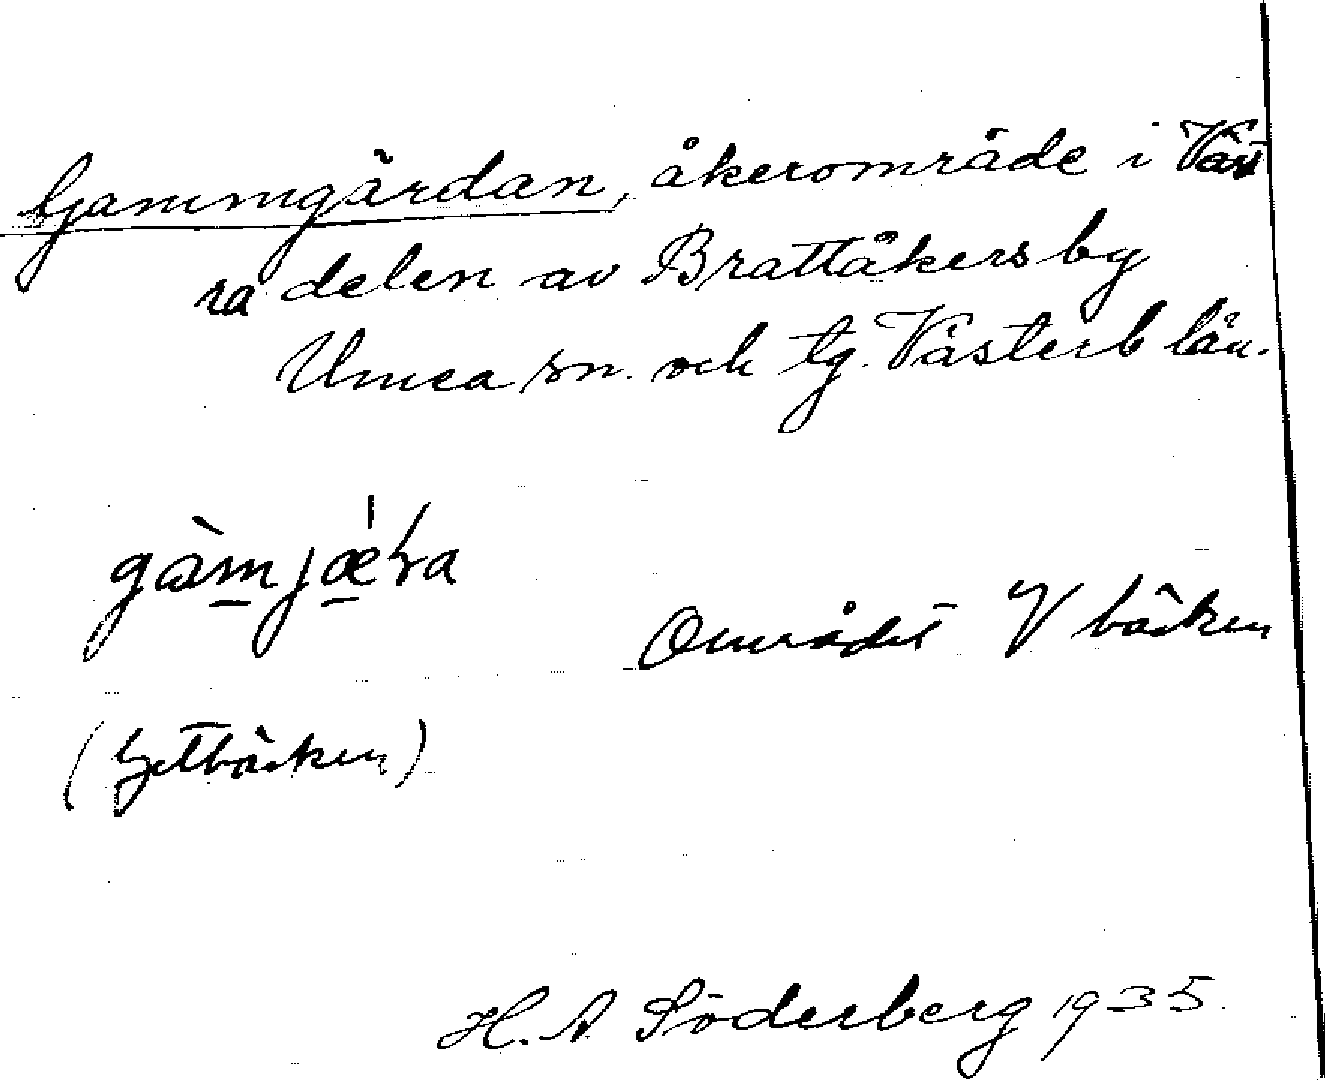 Gammgärdan, åkerområde i Väst
ra delen av Brattåkers by
Umeå sn. och tg. Västerb län.
gàmjæ̀ɽa
Området V bäcken
(Getbäcken)
H. A Söderberg 1935.